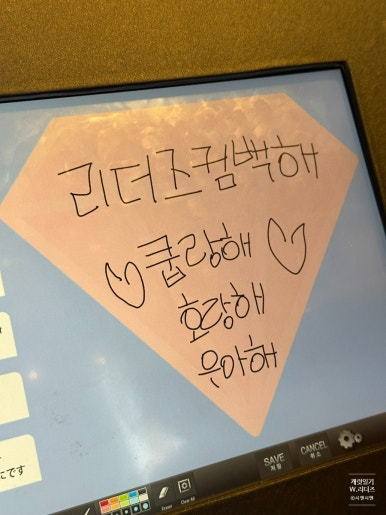 리더즈컴백해
쿱랑해
호랑해
우아해
にです
SAVE
저장
CANCEL
취소
Eraser
Clear All
캐럿일기
W.리더즈